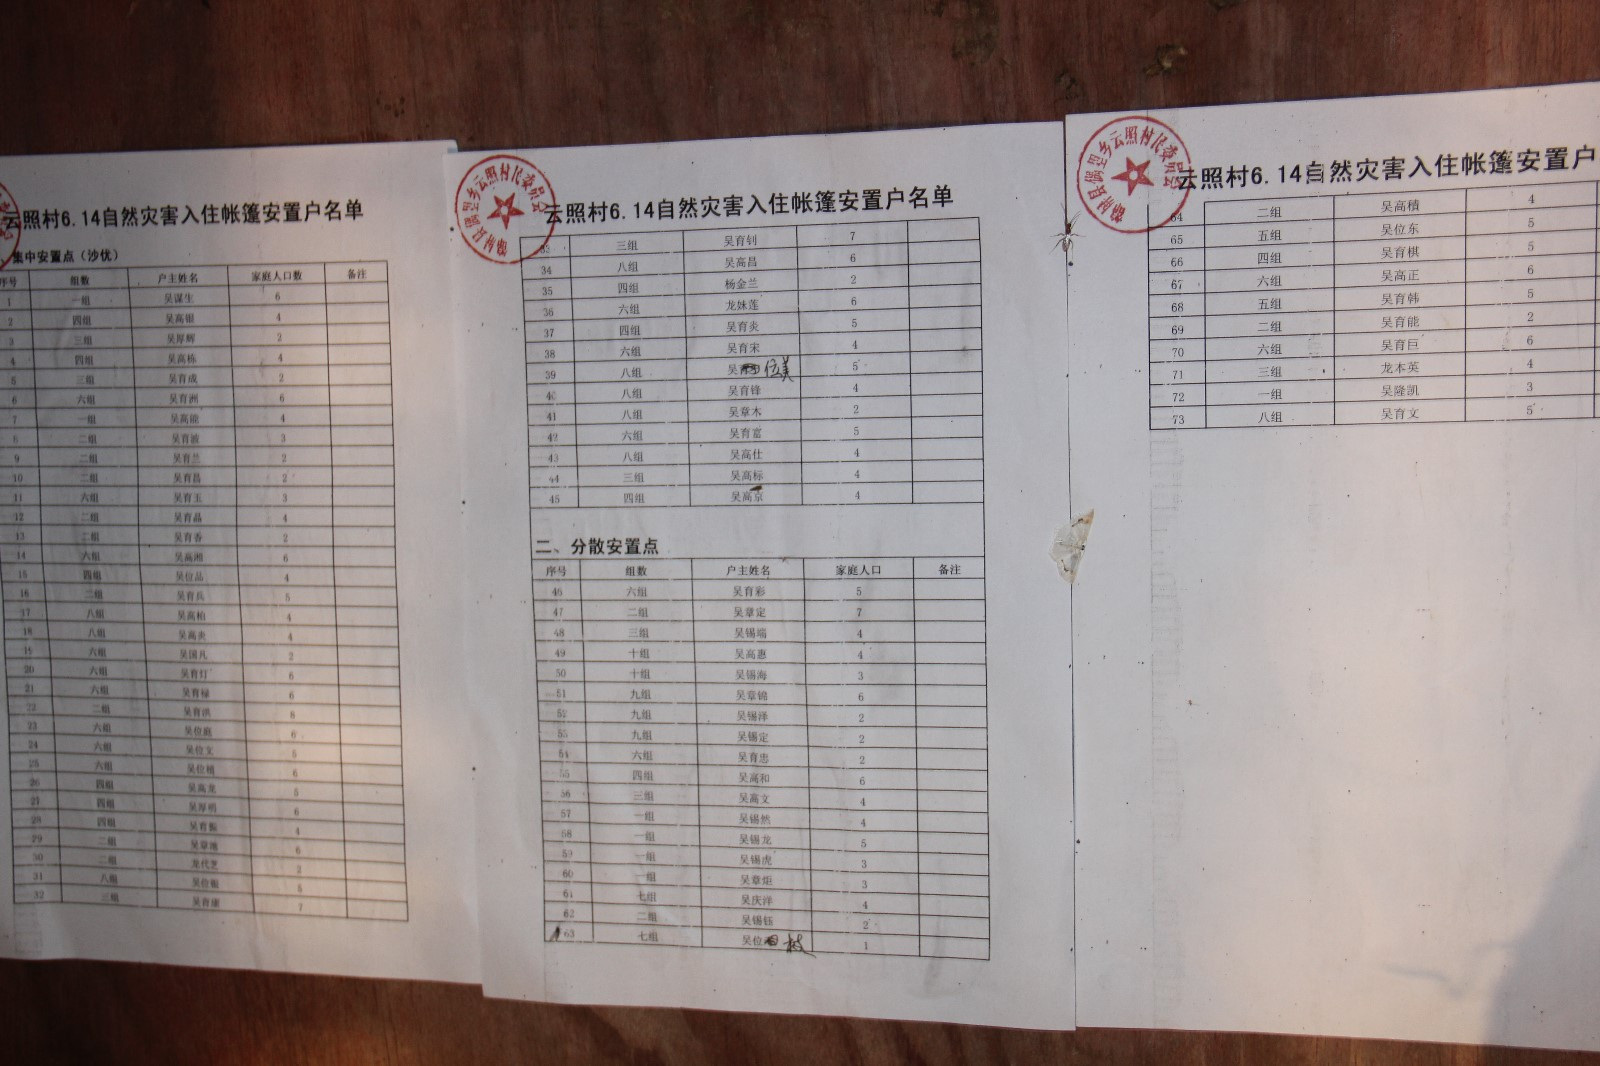 云照村6.14自然灾害入住帐篷安置户名单
集中安置点（沙优）
序号 组数 户主姓名 家庭人口数 备注
1 一组 吴谋生 6
2 四组 吴高银 4
3 三组 吴厚辉 2
4 四组 吴高栋 4
5 三组 吴育成 2
6 六组 吴育洲 6
7 一组 吴高能 4
8 二组 吴育波 3
9 二组 吴育兰 2
10 二组 吴育昌 2
11 六组 吴育玉 3
12 二组 吴育晶 4
13 二组 吴育香 2
14 六组 吴高湘 6
15 四组 吴位品 4
16 二组 吴育兵 5
17 八组 吴高柏 4
18 八组 吴高炎 4
19 六组 吴国凡 2
20 六组 吴育灯 6
21 六组 吴育禄 6
22 二组 吴育洪 8
23 六组 吴位庭 6
24 六组 吴位文 5
25 六组 吴位梢 6
26 四组 吴高龙 5
27 四组 吴厚明 6
28 四组 吴育振 4
29 二组 吴章鴻 6
30 二组 龙代芝 2
31 八组 吴位银 5
32 三组 吴育康 7
云照村6.14自然灾害入住帐篷安置户名单
33 三组 吴育钊 7
34 八组 吴高昌 6
35 四组 杨金兰 2
36 六组 龙妹莲 6
37 四组 吴育炎 5
38 六组 吴育宋 4
39 八组 吴位美 5
40 八组 吴育锋 4
41 八组 吴章木 2
42 六组 吴育富 5
43 八组 吴高仕 4
44 三组 吴高标 4
45 四组 吴高京 4
二、分散安置点
序号 组数 户主姓名 家庭人口 备注
46 六组 吴育彩 5
47 二组 吴章定 7
48 三组 吴锡端 4
49 十组 吴高惠 4
50 十组 吴锡海 3
51 九组 吴章锦 6
52 九组 吴锡泽 2
53 九组 吴锡定 2
54 六组 吴育忠 2
55 四组 吴高和 6
56 三组 吴高文 4
57 一组 吴锡然 4
58 一组 吴锡龙 5
59 一组 吴锡虎 3
60 一组 吴章炬 3
61 七组 吴庆洋 4
62 二组 吴锡钰 2
63 七组 吴位枝 1
云照村6.14自然灾害入住帐篷安置户
64 二组 吴高積 4
65 五组 吴位东 5
66 四组 吴育棋 5
67 六组 吴高正 6
68 五组 吴育韩 5
69 二组 吴育能 2
70 六组 吴育巨 6
71 三组 龙本英 4
72 一组 吴隆凯 3
73 八组 吴育文 5